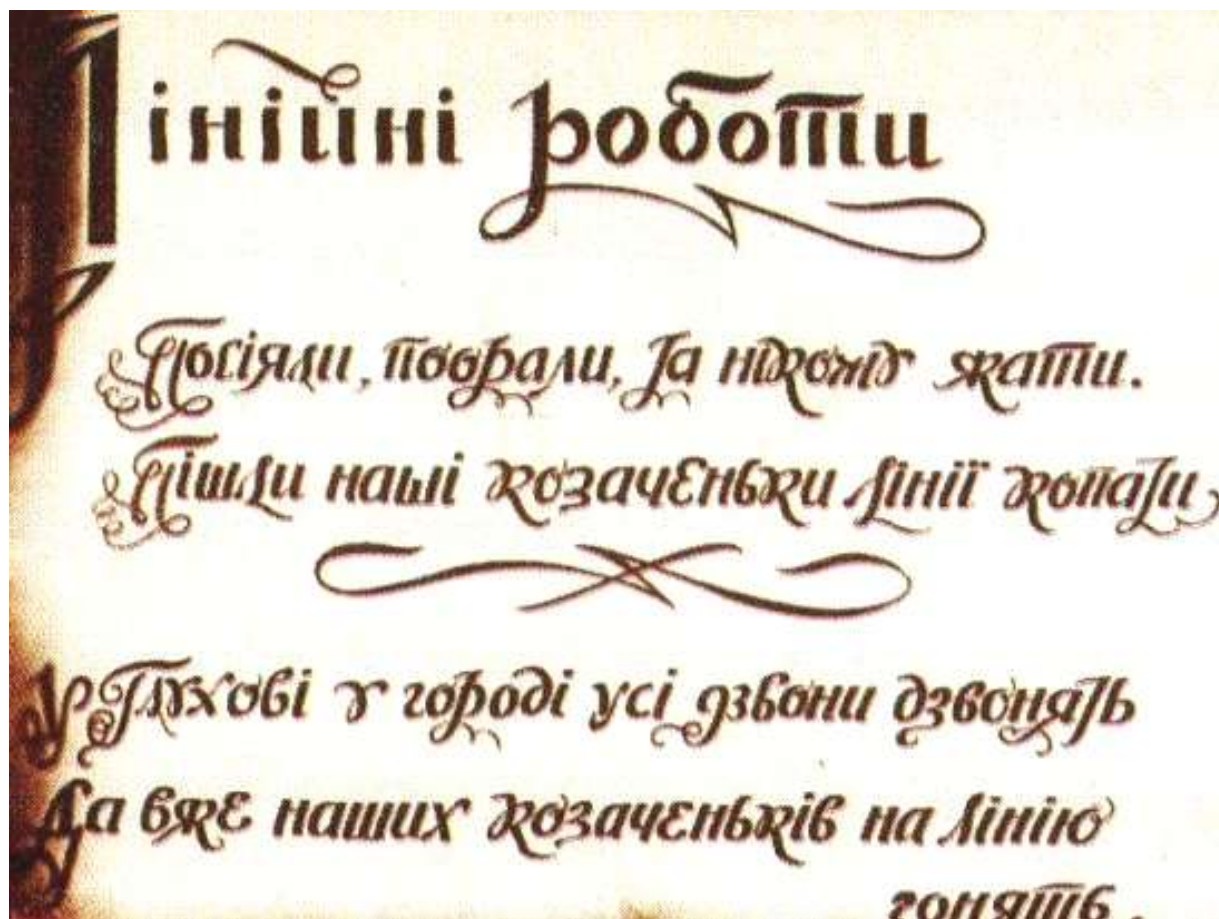 Лінійні роботи
Посіяли, поорали, Та нікому жати.
Пішли наші козаченьки лінії копати
У Глухові у городі усі дзвони дзвонять
Да вже наших козаченьків на лінію
гонять